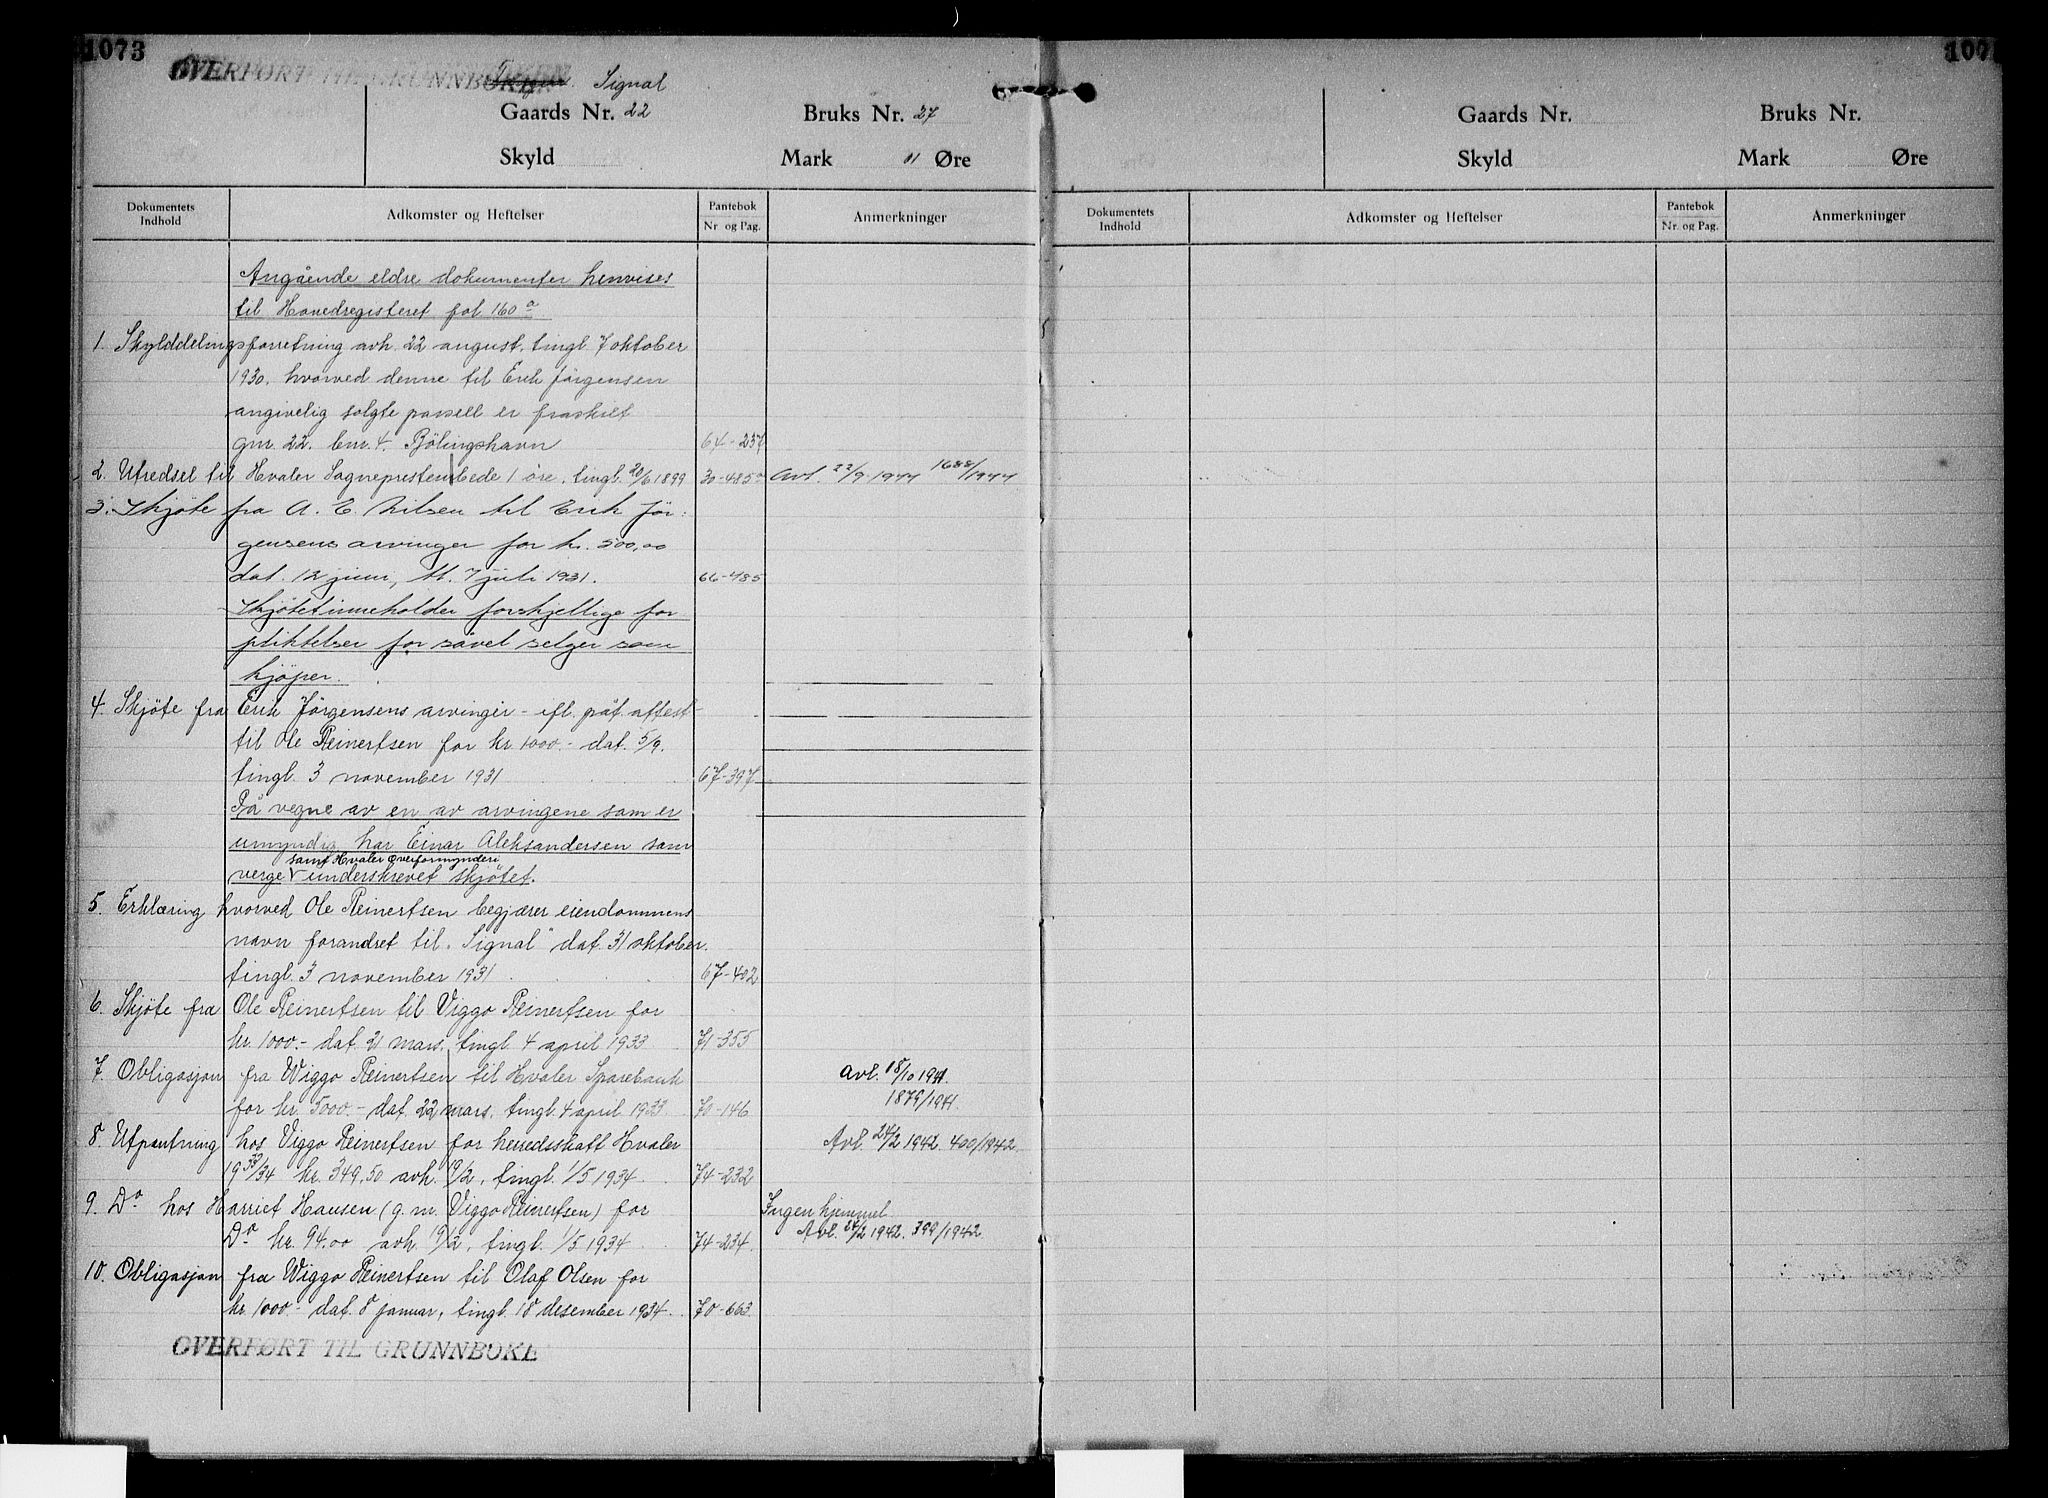 1073
OVERFØRT TIL GRUNNBOKEN
Signal
Gaards Nr. 22 Bruks Nr. 27
Skyld Mark 01 Øre
Dokumentets Indhold Adkomster og Heftelser Pantebok Nr og Pag. Anmerkninger
Angående eldre dokumenter henvises
til Hovedregisteret fol 160 a
1. Skylddelingsforretning avh. 22 august, tingl. 7 oktober
1930, hvorved denne til Erik Jörgensen
angivelig solgte parsell er fraskilt
gnr. 22. bnr. 4. Bölingshavn 64-237
2. Utredsel til Hvaler Sogneprestembede 1 öre, tingl. 20/6 1899 30-485 Avl. 22/9 1977 1688/1977
3. Skjöte fra A. E. Nilsen til Erik Jör-
gensens arvinger for kr. 500,00
dat. 12 juni, tl. 7 juli 1931. 66-485
Skjötet inneholder forskjellige for
pliktelser for såvel selger som
kjöper.
4. Skjöte fra Erik Jörgensens arvinger - ifl. påt. attest -
til Ole Reinertsen for kr 1000.- dat. 5/9.
tingl. 3 november 1931 67-397
På vegne av en av arvingene som er
umyndig har Einar Aleksandersen som
samt Hvaler overformynderi
verge V underskrevet skjötet.
5. Erklæring hvorved Ole Reinertsen begjærer eiendommens
navn forandret til "Signal" dat. 31 oktober.
tingl. 3 november 1931 67-402
6. Skjöte fra Ole Reinertsen til Viggo Reinertsen for
kr. 1000.- dat. 21 mars, tingl. 4 april 1933 71-355
7. Obligasjon fra Wiggo Reinertsen til Hvaler Sparebank Avl. 18/10 1941.
for kr. 5000.- dat. 22 mars, tingl. 4 april 1933 70-146 1879/1941.
8. Utpantning hos Viggo Reinertsen for herredsskatt Hvaler Avl. 24/2 1942. 400/1942.
1933/34 kr. 349,50 avh. 19/2, tingl. 1/5 1934. 74-232
9. Do hos Harriet Hansen (g.m. Viggo Reinertsen) for Ingen hjemmel
Do kr. 94.00 avh. 19/2, tingl. 1/5 1934. 74-234. Avl. 24/2 1942. 399/1942
10. Obligasjon fra Wiggo Reinertsen til Olaf Olsen for
kr. 1000.- dat. 8 januar, tingl. 18 desember 1934. 70-663.
OVERFØRT TIL GRUNNBOKE
107
Gaards Nr. Bruks Nr.
Skyld Mark Øre
Dokumentets Indhold Adkomster og Heftelser Pantebok Nr. og Pag. Anmerkninger